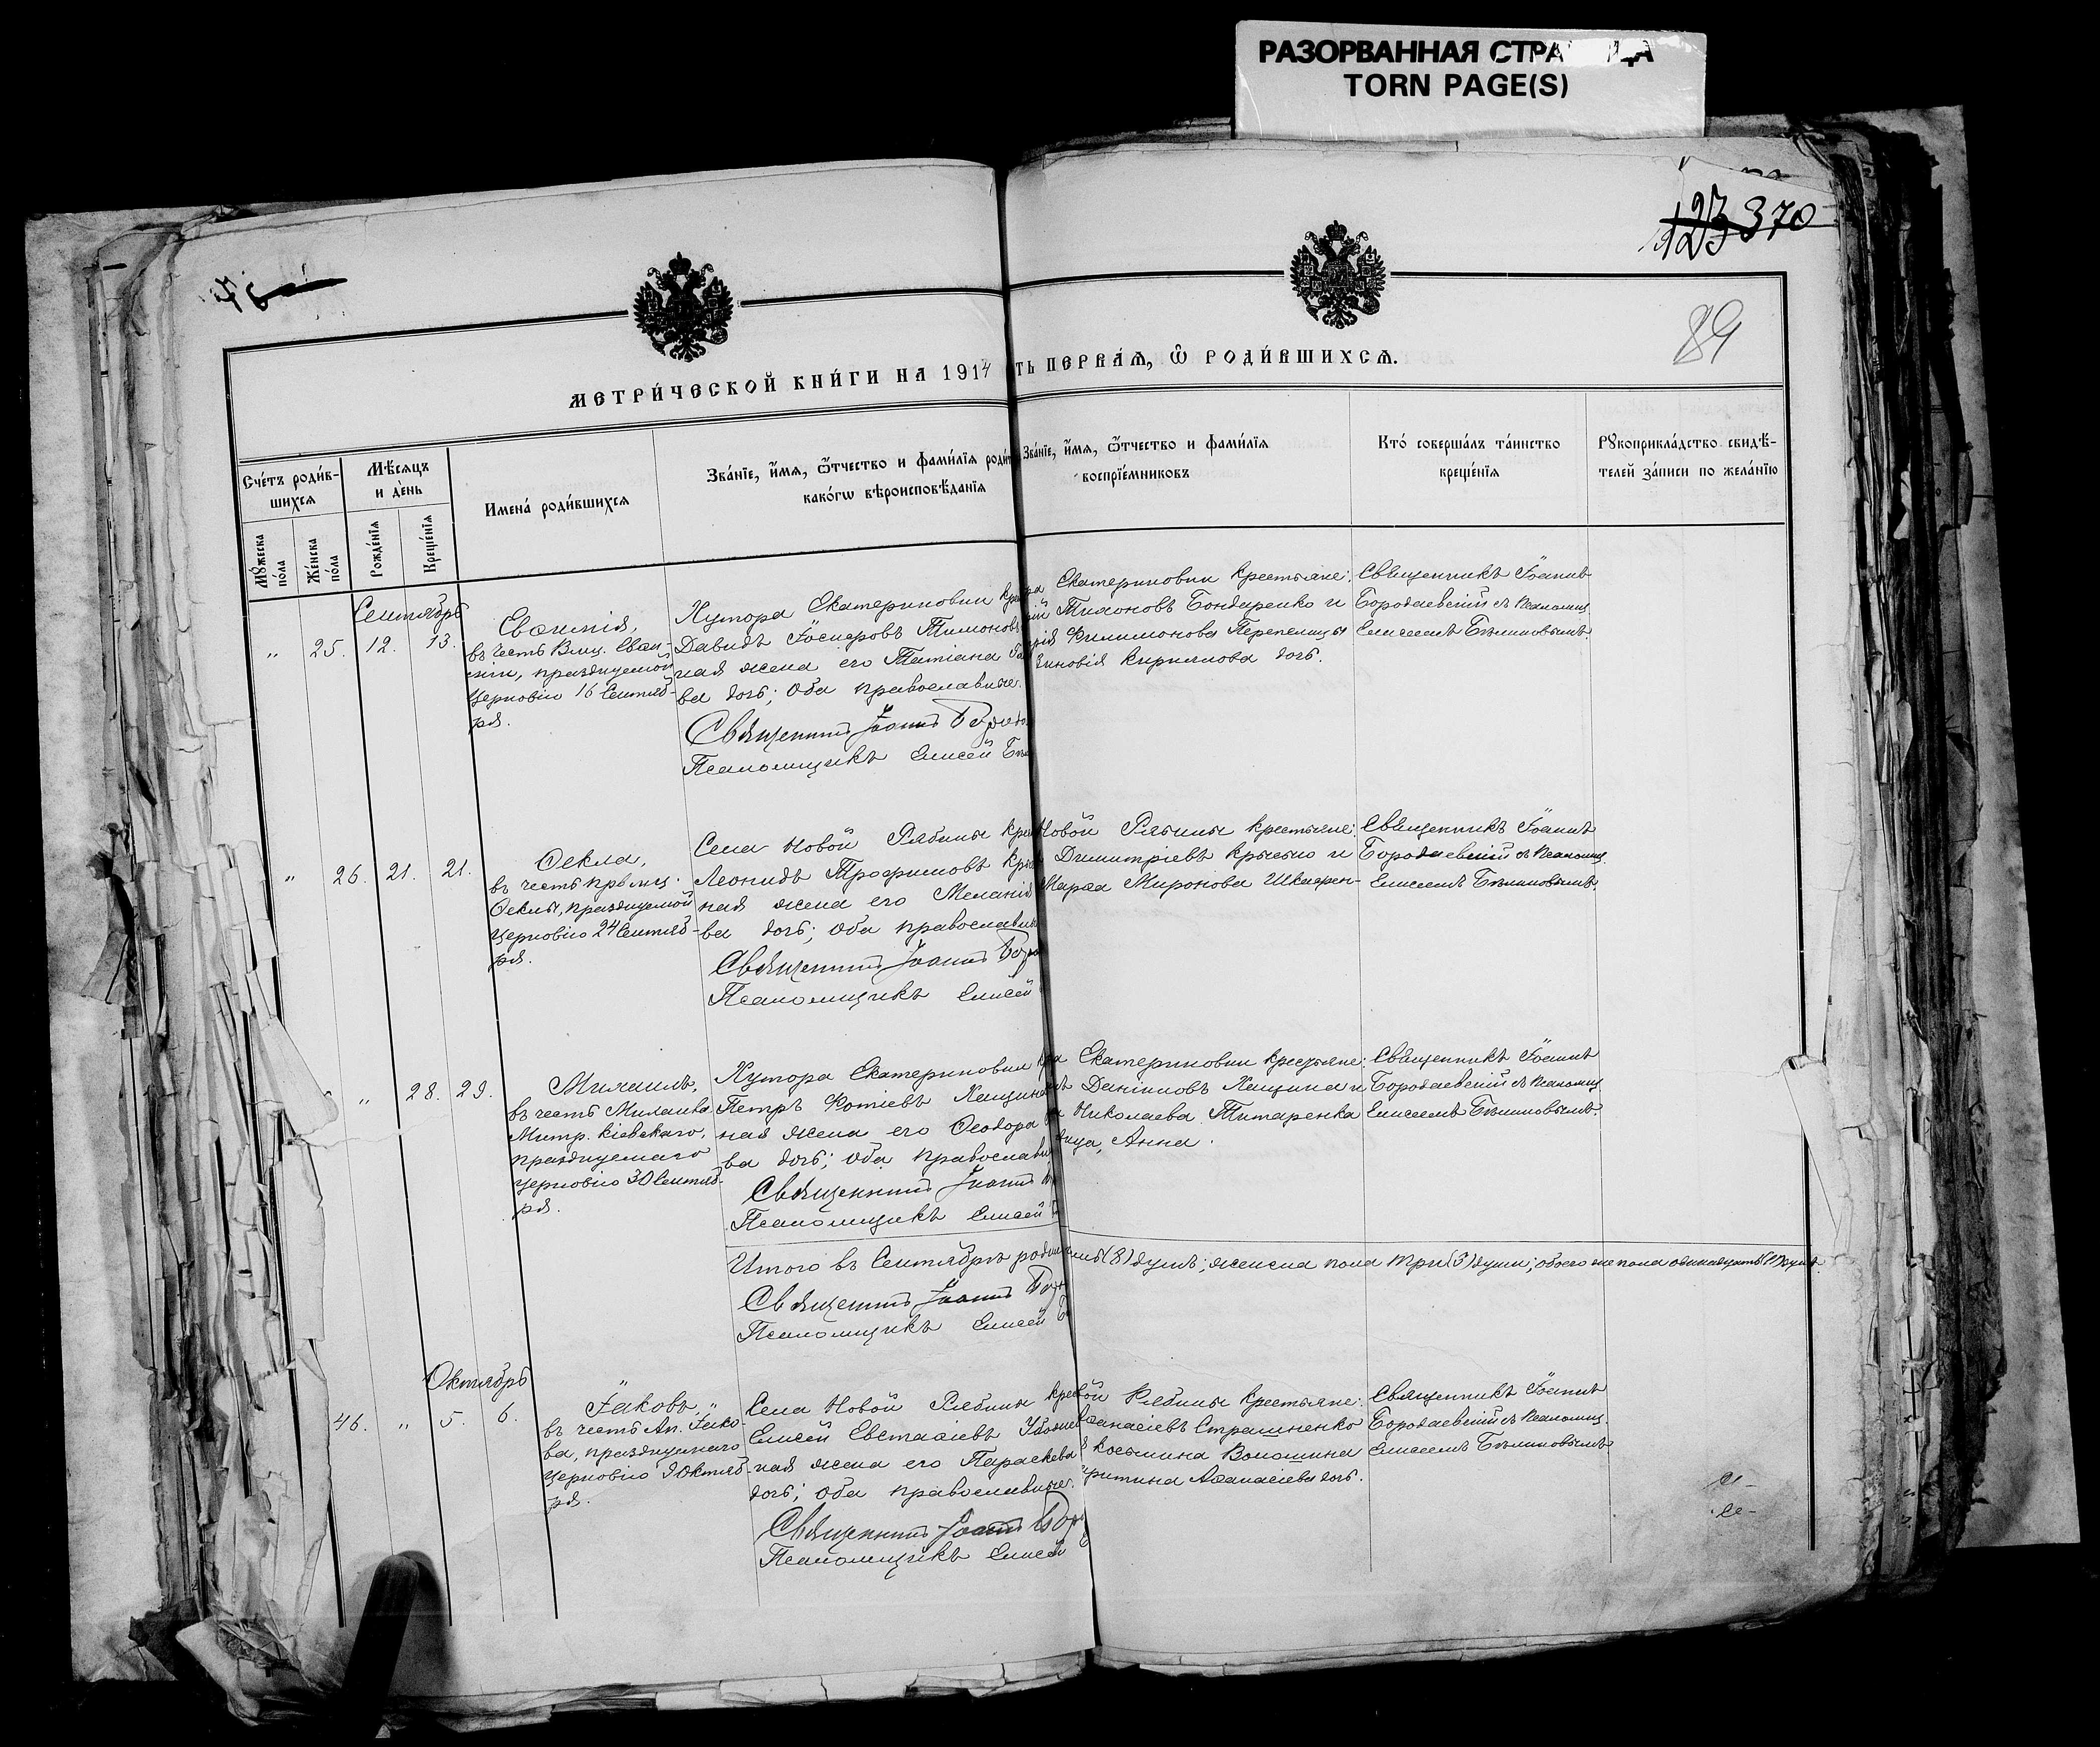 РАЗОРВАННАЯ СТРА ЦА
TORN PAGE(S)
370
89
МЕТРИ́ЧЕСКОЙ КНИ́ГИ НА 1914
ТЬ ПЕРВА́Ѧ, Ѽ РОДИ́ВШИХСѦ.
Сче́тъ роди́в-
шихсѧ
Мѣ́сѧцъ
и де́нь
Мꙋ́жеска по́ла
Же́нска по́ла
Рожде́нїѧ
Креще́нїѧ
Имена́ роди́вшихсѧ
Зва́нїе, и҆́мѧ, ѻ҆́тчество и фами́лїѧ роди
како́гѡ вѣроисповѣ́данїѧ
Зва́нїе, и҆́мѧ, ѻ҆́тчество и фами́лїѧ
воспрїе́мниковъ
Кто́ соверша́лъ та́инство
креще́нїѧ
Рꙋкоприкла́дство свидѣ́-
телей за́писи по жела́нїю
Сентябрь
„ 25. 12. 13.
Евѳимія,
въ честь Влмц. Евѳи-
міи, празднуемой
Церковію 16 Сентяб-
ря.
Хутора Екатериновки
Давидъ Іосифовъ Тимонов
ная жена его Татіана
ва дочь; оба православные.
Священникъ Іоаннъ
Псаломщикъ Елисей
Екатериновки крестьяне:
Тихоновъ Бондаренко и
Филимонова Перепелицы
Зиновія Кириллова дочь.
Священникъ Іоаннъ
Бородаевскій съ псаломщ.
Елисеемъ Бѣлиновымъ.
„ 26. 21. 21.
Ѳекла,
въ честь прѣмц.
Ѳеклы, празднуемой
Церковію 24 Сентяб-
ря.
Села Новой Рябины
Леонидъ Трофимовъ
ная жена его Меланія
ва дочь; оба православн
Священникъ Іоаннъ
Псаломщикъ Елисей
Новой Рябины крестьяне:
Димитріевъ Крысько и
Марѳа Миронова
Священникъ Іоаннъ
Бородаевскій съ псаломщ.
Елисеемъ Бѣлиновымъ.
„ 28. 29.
Михаилъ,
въ честь Михаила
Митр. Кіевскаго,
празднуемаго
Церковію 30 Сентяб-
ря.
Хутора Екатериновки
Петръ Фотіевъ Хащина
ная жена его Ѳеодора
ва дочь; оба православн
Священникъ Іоаннъ
Псаломщикъ Елисей
Екатериновки крестьяне:
Даніиловъ Хащина и
Николаева Титаренка
вица, Анна.
Священникъ Іоаннъ
Бородаевскій съ псаломщ.
Елисеемъ Бѣлиновымъ.
Итого въ Сентябрѣ родил
(8) душъ; женска пола три (3) души; обоего же пола одинадцать (11) душъ.
Священникъ Іоаннъ
Псаломщикъ Елисей
Октябрь
46. „ 5. 6.
Іаковъ,
въ честь Ап. Іако-
ва, празднуемаго
Церковію 9 Октяб-
ря.
Села Новой Рябины
Елисей Евстафіевъ
ная жена его Параскева
дочь; оба православные.
Священникъ Іоаннъ
Псаломщикъ Елисей
Рябины крестьяне:
Аѳанасіевъ Страшненко
Косьмина Волошина
Аѳанасіева дочь.
Священникъ Іоаннъ
Бородаевскій съ псаломщ.
Елисеемъ Бѣлиновымъ.